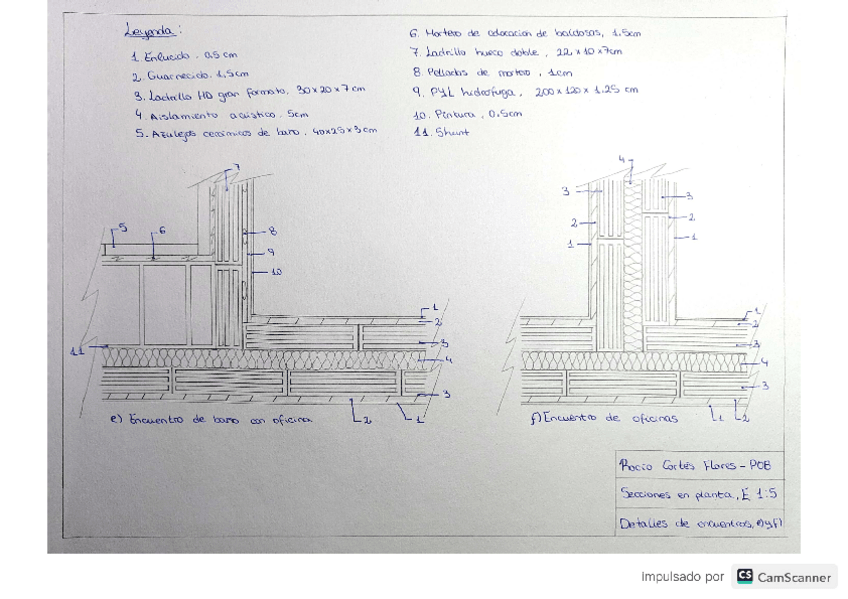 Leyenda:
1. Enlucido. 0,5 cm
2. Guarnecido. 1,5cm
3. Ladrillo HD gran formato, 30x20x7 cm
4. Aislamiento acústico. 5cm
5. Azulejos cerámicos de baño. 40x25x3cm
6. Mortero de colocación de baldosas, 1.5cm
7. Ladrillo hueco doble, 22x10x7cm
8. Pelladas de mortero, 1cm
9. PYL hidrofuga, 200x120x1.25 cm
10. Pintura, 0.5cm
11. Shunt
7
5
6
8
9
10
1
2
3
4
11
3
2
1
e) Encuentro de baño con oficina
4
3
3
2
2
1
1
1
2
3
4
3
1
2
f) Encuentro de oficinas
Rocío Cortés Flores - POB
Secciones en planta, E 1:5
Detalles de encuentros, e) y f)
Impulsado por CS CamScanner